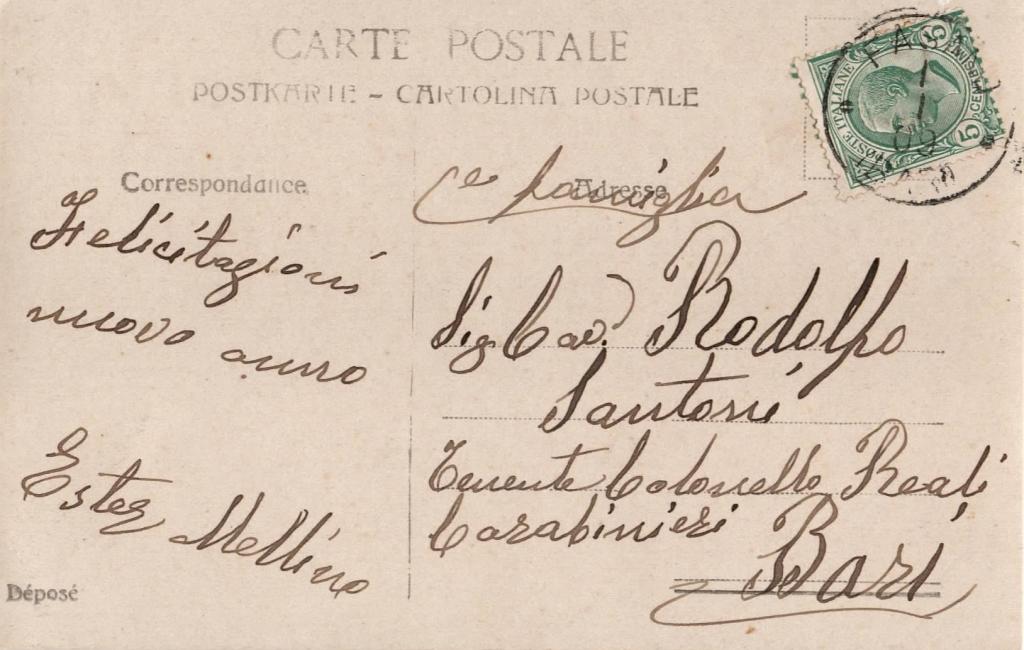 CARTE POSTALE
POSTKARTE - CARTOLINA POSTALE
Correspondance
Felicitazioni
nuovo anno
Ester Mellino
Déposé
Adresse
e famiglia
Sig Cav. Rodolfo
Santoni
Tenente Colonello Reali
Carabinieri
Bari
POSTE ITALIANE
5 CENTESIMI 5